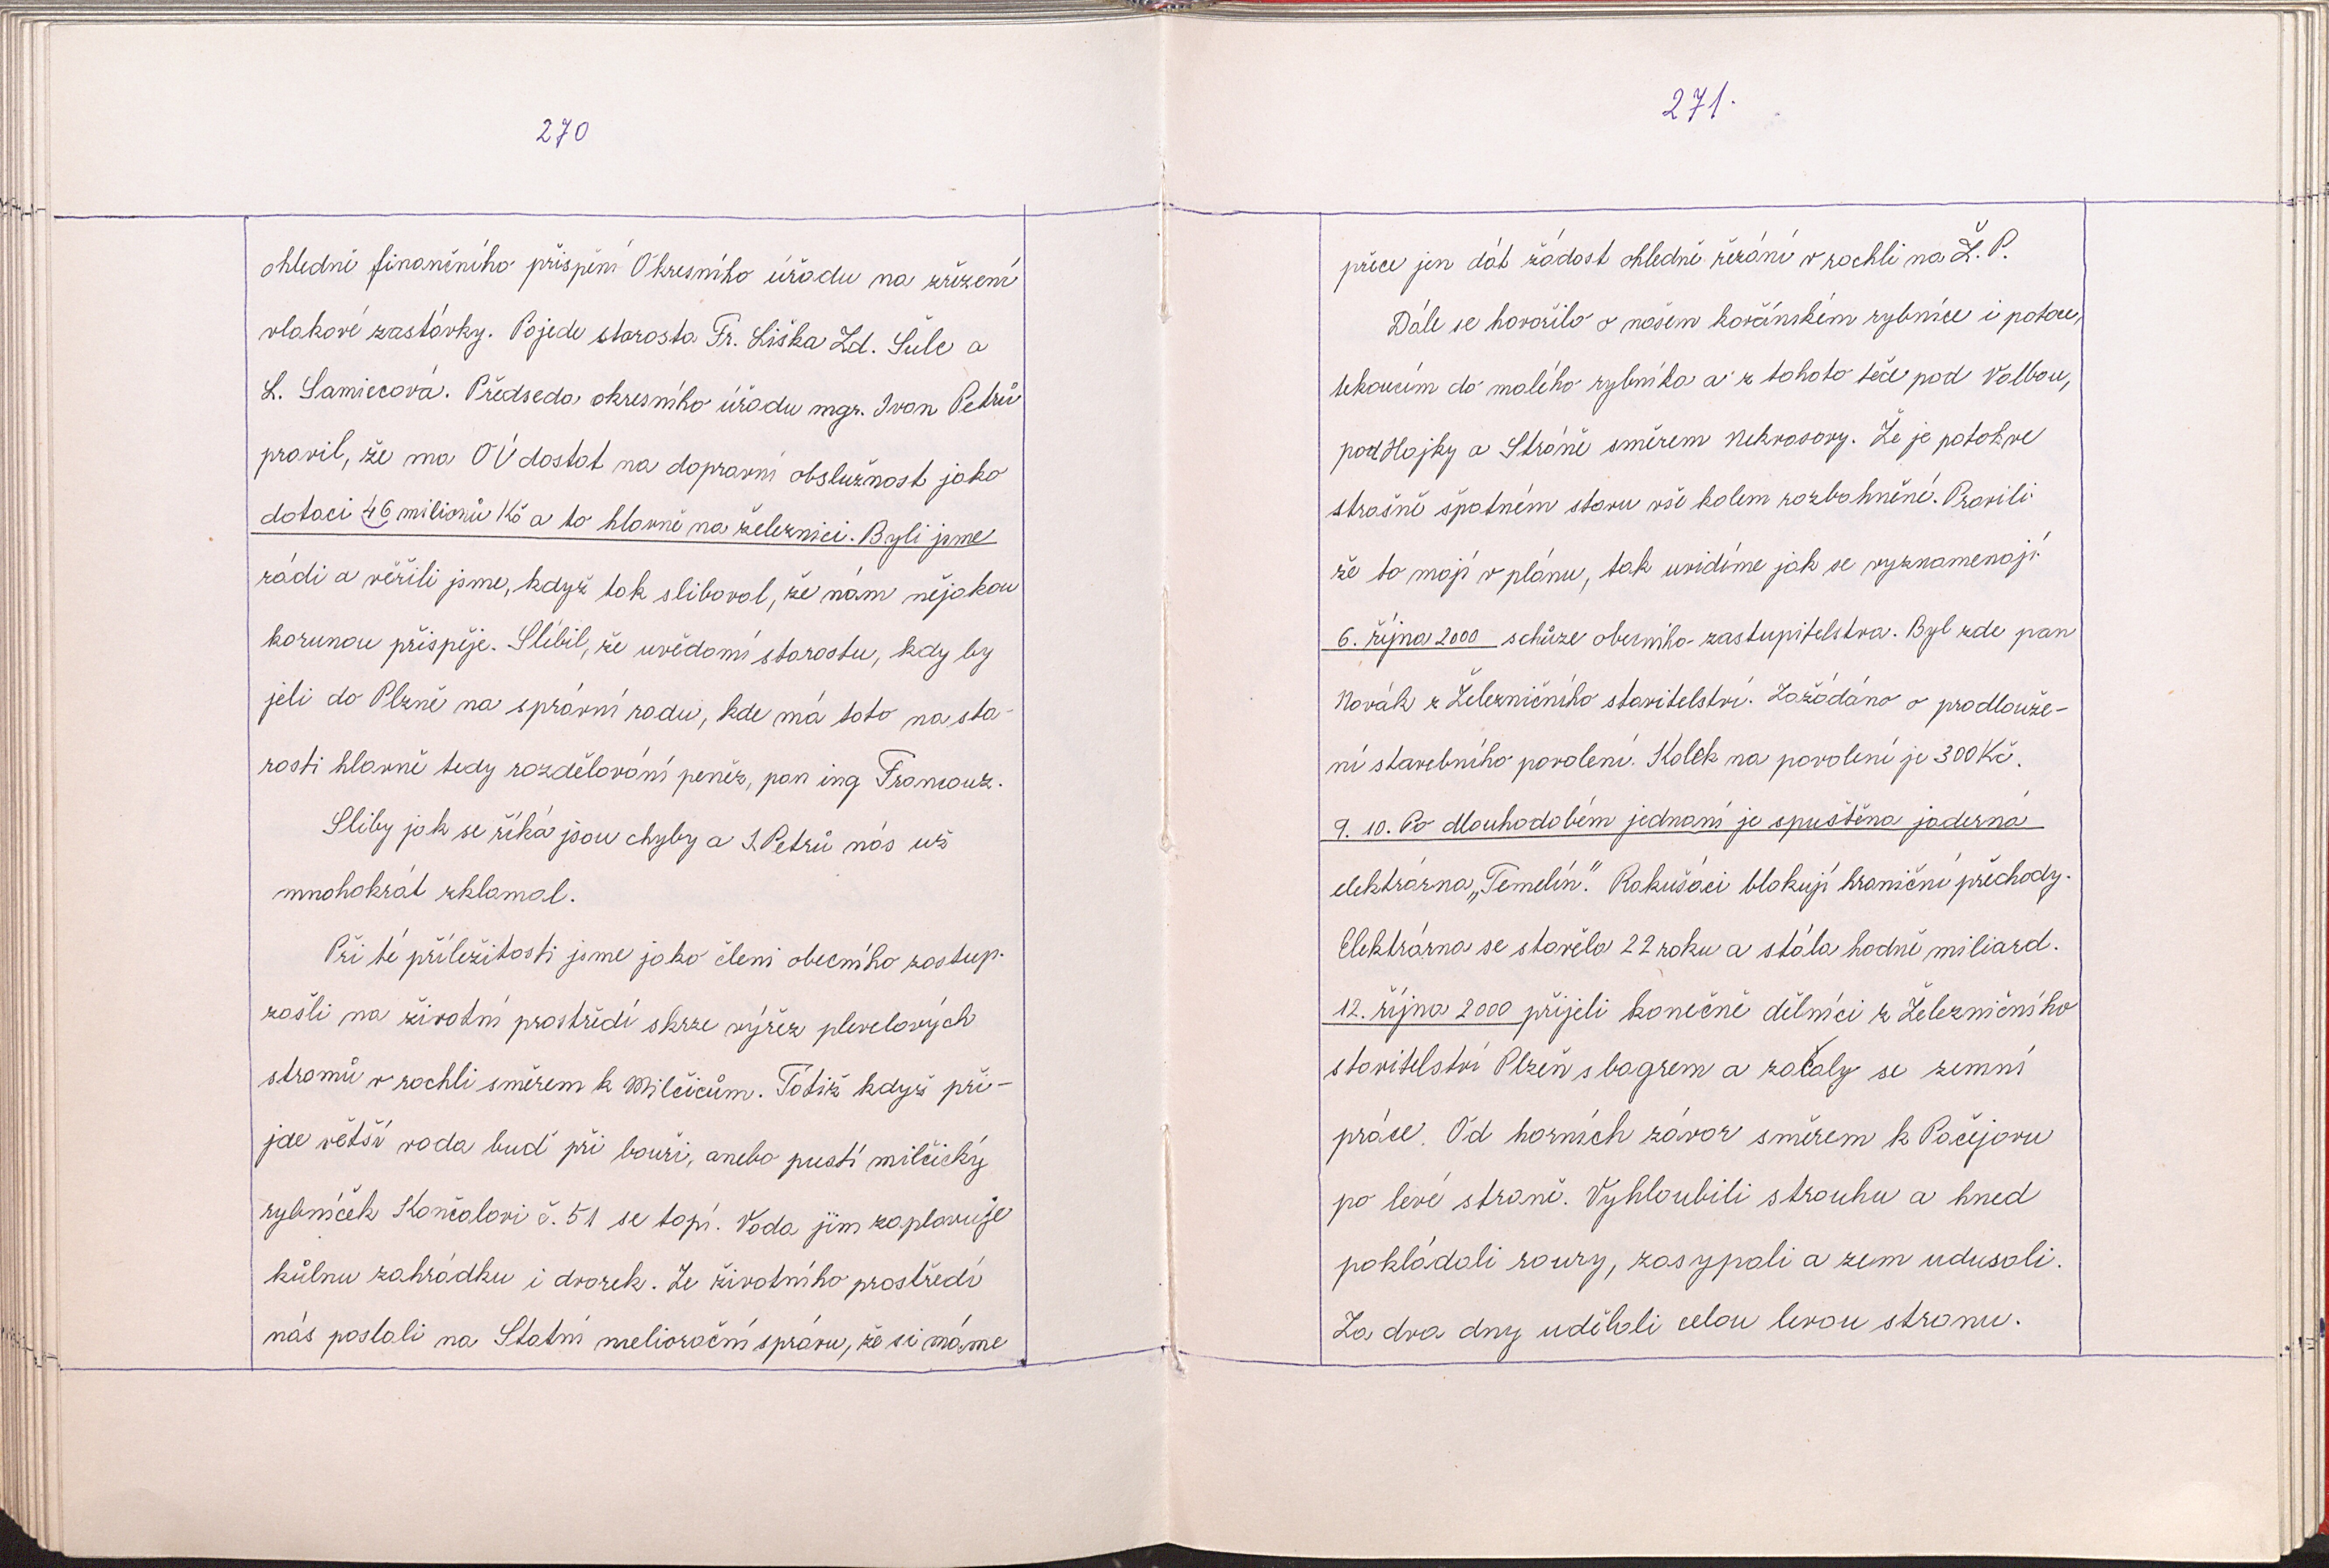 270
ohledně finančního přispění Okresního úřadu na zřízení
vlakové zastávky. Pojede starosta Fr. Liška Zd. Šulc a
L. Samiecová. Předseda okresního úřadu mgr. Ivan Petrů
pravil, že ma OÚ dostat na dopravní obslužnost jako
dotaci 46 milionů Kč a to hlavně na železnici. Byli jsme
rádi a věřili jsme, když tak sliboval, že nám nějakou
korunou přispěje. Slíbil, že uvědomí starostu, kdy by
jeli do Plzně na správní radu, kde má toto na sta-
rosti hlavně tedy rozdělování peněz, pan ing Francouz.
Sliby jak se říká jsou chyby a I. Petrů nás už
mnohokrát zklamal.
Při té příležitosti jsme jako členi obecního zastup.
zašli na životní prostředí skrze výřez plevelových
stromů v rachli směrem k Milčicům. Tótiž když při-
jde větší voda buď při bouři, anebo pustí milčický
rybníček Končalovi č. 51 se topí. Voda jim zaplavuje
kůlnu zahrádku i dvorek. Ze životního prostředí
nás poslali na Statní meliorační správu, že si máme
271.
přece jen dát žádost ohledně řezání v rachli na Ž. P.
Dále se hovořilo o našem kovčínském rybníce i potoce,
tekoucím do malého rybníka a z tohoto teče pod Valbou,
pod Hajky a Stráně směrem Nekvasovy. Že je potok ve
strašně špatném stavu vše kolem rozbahnění. Pravili
že to mají v plánu, tak uvidíme jak se vyznamenají
6. října 2000 schůze obecního zastupitelstva. Byl zde pan
Novák z Železničního stavitelství. Zažádáno o prodlouže-
ní stavebního povolení. Kolek na povolení je 300 Kč.
9. 10. Po dlouhodobém jednaní je spuštěna jaderná
elektrárna „Temelín". Rakušáci blokují hraniční přechody.
Elektrárna se stavěla 22 roku a stála hodně miliard.
12. října 2000 přijeli konečně dělníci z Železničního
stavitelství Plzeň s bagrem a začaly se zemní
práce. Od horních závor směrem k Pačejovu
po levé straně. Vyhloubili strouhu a hned
pokládali roury, zasypali a zem udusali.
Za dva dny udělali celou levou stranu.